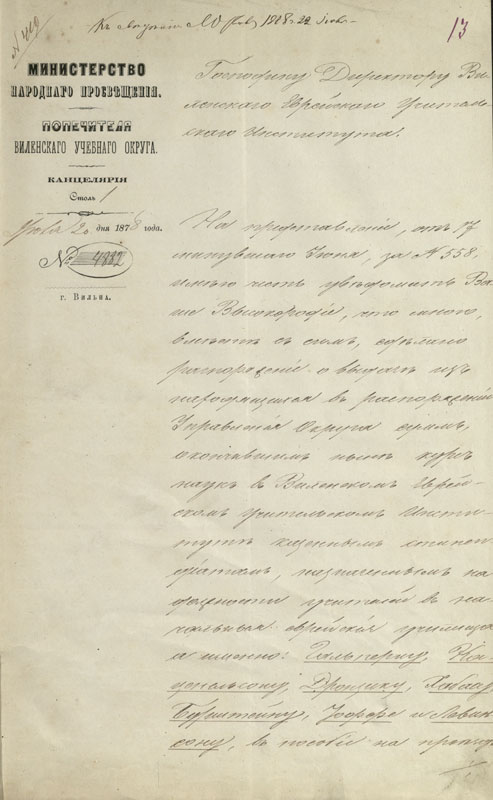 № 410
13
МИНИСТЕРСТВО
НАРОДНАГО ПРОСВѢЩЕНІЯ.
ПОПЕЧИТЕЛЯ
ВИЛЕНСКАГО УЧЕБНАГО ОКРУГА.
КАНЦЕЛЯРІЯ
Столъ 1
дня 1878 года.
№ 4882
г. Вильна.
Господину Директору Ви-
ленскаго Еврейскаго Учитель-
скаго Института.
На представленіе, отъ 17
минувшаго Іюня, за № 558,
имѣю честь увѣдомить Ва-
ше Высокородіе, что мною,
вмѣстѣ съ симъ, сдѣлано
распоряженіе о выдачѣ изъ
находящихся въ распоряженіи
Управленія Округа суммъ,
окончившимъ нынѣ курсъ
наукъ въ Виленскомъ Еврей-
скомъ Учительскомъ Инсти-
тутѣ казеннымъ стипен-
діатамъ, назначеннымъ на
должности учителей въ на-
чальныя еврейскія училища
а именно: Гальперину, Ка-
ценельсону, Хавасу,
и Левин-
сону, въ пособіе на